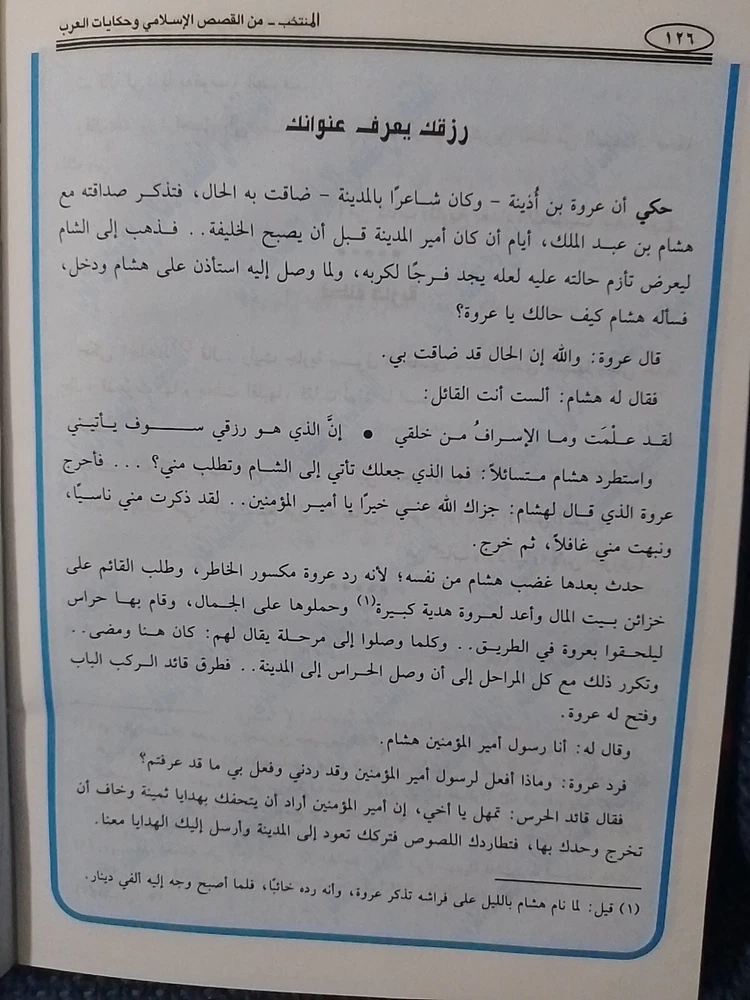 المنتخب - من القصص الإسلامي وحكايات العرب
١٢٦
رزقك يعرف عنوانك
حكي أن عروة بن أُذينة - وكان شاعرًا بالمدينة - ضاقت به الحال، فتذكر صداقته مع
هشام بن عبد الملك، أيام أن كان أمير المدينة قبل أن يصبح الخليفة.. فذهب إلى الشام
ليعرض تأزم حالته عليه لعله يجد فرجًا لكربه، ولما وصل إليه استأذن على هشام ودخل،
فسأله هشام كيف حالك يا عروة؟
قال عروة: والله إن الحال قد ضاقت بي.
فقال له هشام: ألست أنت القائل:
لقد علْمَت وما الإسرافُ من خلقي • إنَّ الذي هو رزقي سوف يأتيني
واستطرد هشام متسائلاً: فما الذي جعلك تأتي إلى الشام وتطلب مني؟ ... فأحرج
عروة الذي قال لهشام: جزاك الله عني خيرًا يا أمير المؤمنين.. لقد ذكرت مني ناسيًا،
ونبهت مني غافلاً، ثم خرج.
حدث بعدها غضب هشام من نفسه؛ لأنه رد عروة مكسور الخاطر، وطلب القائم على
خزائن بيت المال وأعد لعروة هدية كبيرة(١) وحملوها على الجمال، وقام بها حراس
ليلحقوا بعروة في الطريق.. وكلما وصلوا إلى مرحلة يقال لهم: كان هنا ومضى..
وتكرر ذلك مع كل المراحل إلى أن وصل الحراس إلى المدينة.. فطرق قائد الركب الباب
وفتح له عروة.
وقال له: أنا رسول أمير المؤمنين هشام.
فرد عروة: وماذا أفعل لرسول أمير المؤمنين وقد ردني وفعل بي ما قد عرفتم؟
فقال قائد الحرس: تمهل يا أخي، إن أمير المؤمنين أراد أن يتحفك بهدايا ثمينة وخاف أن
تخرج وحدك بها، فتطاردك اللصوص فتركك تعود إلى المدينة وأرسل إليك الهدايا معنا.
(١) قيل: لما نام هشام بالليل على فراشه تذكر عروة، وأنه رده خائبًا، فلما أصبح وجه إليه ألفي دينار.